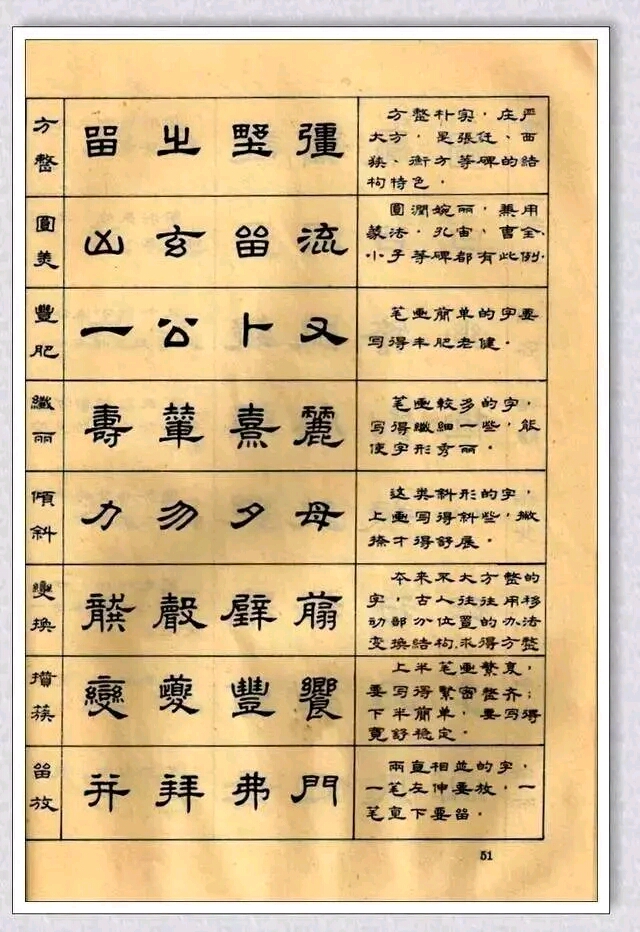 方整
畱 之 彊
方整朴实，庄严
大方，是張迁、西
狹、衡方等碑的結
构特色。
圓美
凶 玄 畱 流
圓潤婉丽，兼用
篆法，孔宙、曹全、
小子等碑都有此例.
豐肥
一 公 卜 又
笔画簡单的字要
写得丰肥老健。
纖丽
壽 熹 麗
笔画較多的字，
写得纖細一些，能
使字形秀丽。
傾斜
力 勿 夕 母
这类斜形的字，
上画写得斜些，撇
捺才得舒展。
變換
璧 翦
本来不大方整的
字，古人往往用移
动部分位置的办法
变換結构.求得方整
攢簇
變 夔 豐 饗
上半笔画繁复，
要写得緊密整齐；
下半簡单，要写得
寬舒稳定。
畱放
并 拜 弗 門
兩直相並的字，
一笔左伸要放，一
笔直下要畱。
51